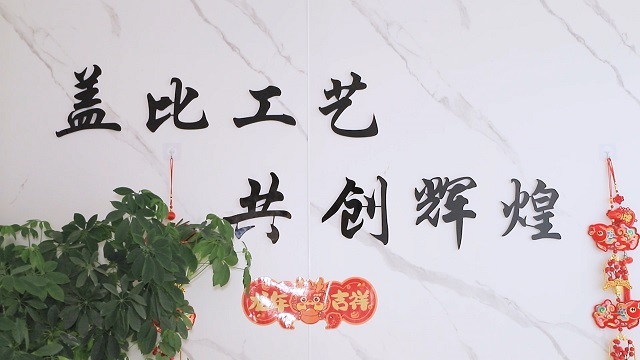 盖比工艺
共创辉煌
龙年吉祥